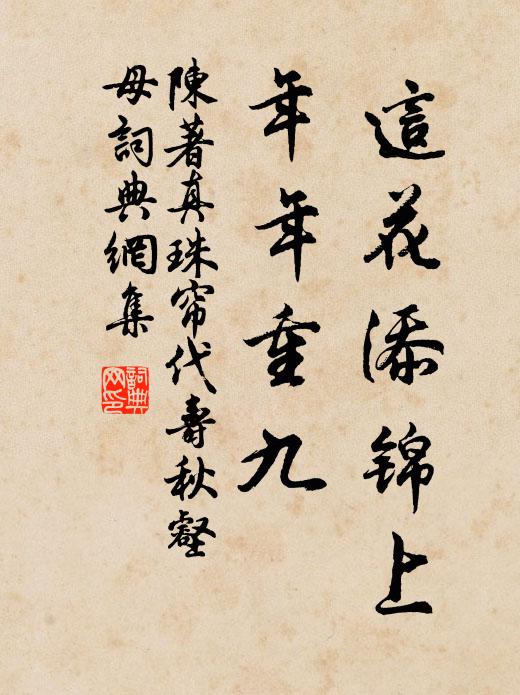 這花添錦上
年年重九
陳著真珠帘代壽秋壑
母詞典網集
詞典網印